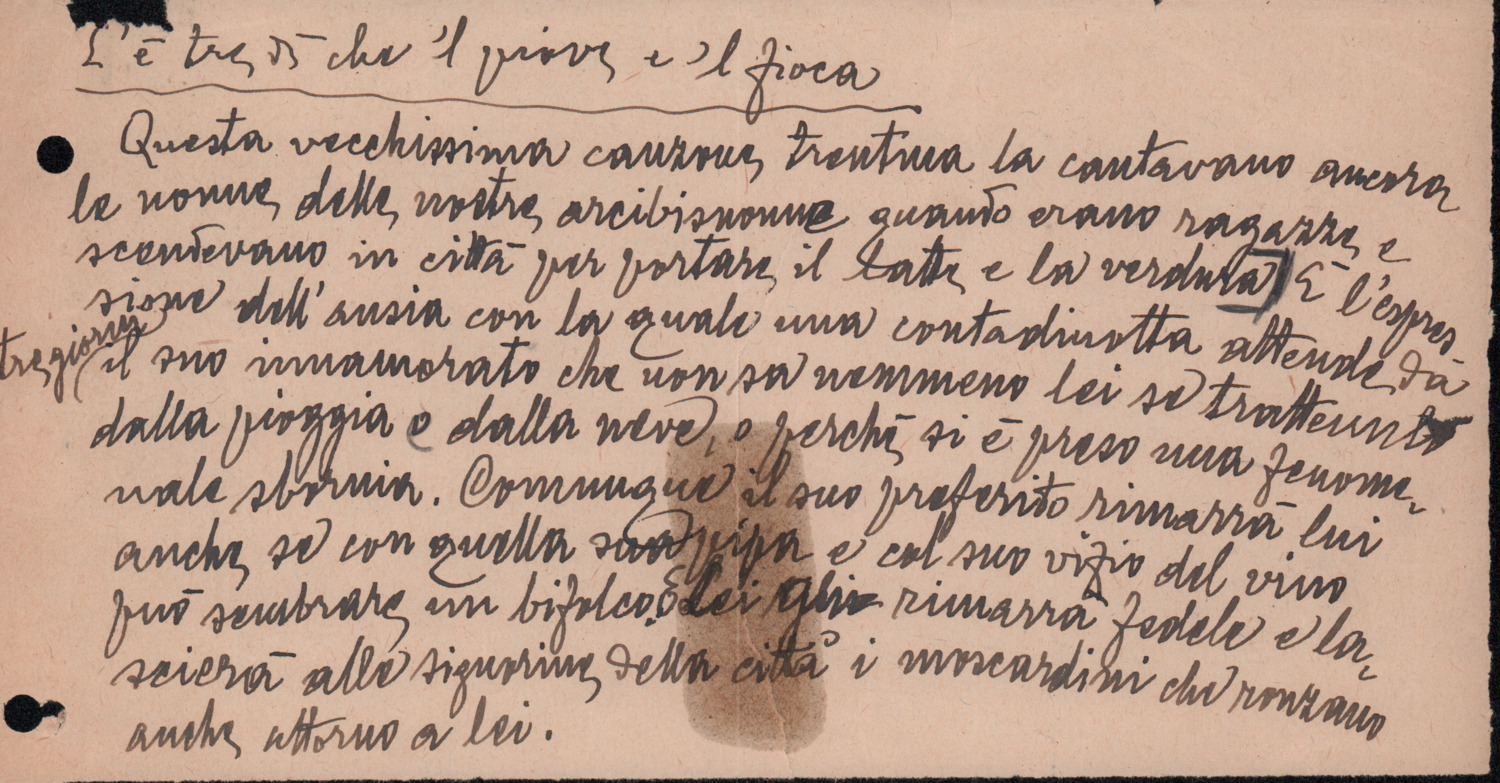 L'è tre dì che 'l piove e 'l fioca
Questa vecchissima canzone trentina la cantavano ancora
le nonne delle nostre arcibisnonne quando erano ragazze e
scendevano in città per portare il latte e la verdura) È l'espres-
sione dell'ansia con la quale una contadinotta attende da
tre giorni
il suo innamorato che non sa nemmeno lei se trattenuto
dalla pioggia o dalla neve, o perché si è preso una fenome-
nale sbornia. Comunque il suo preferito rimarrà lui
anche se con quella sua pipa e col suo vizio del vino
può sembrare un bifolco. E lei gli rimarrà fedele e la-
scierà alle signorine della città i moscardini che ronzano
anche attorno a lei.